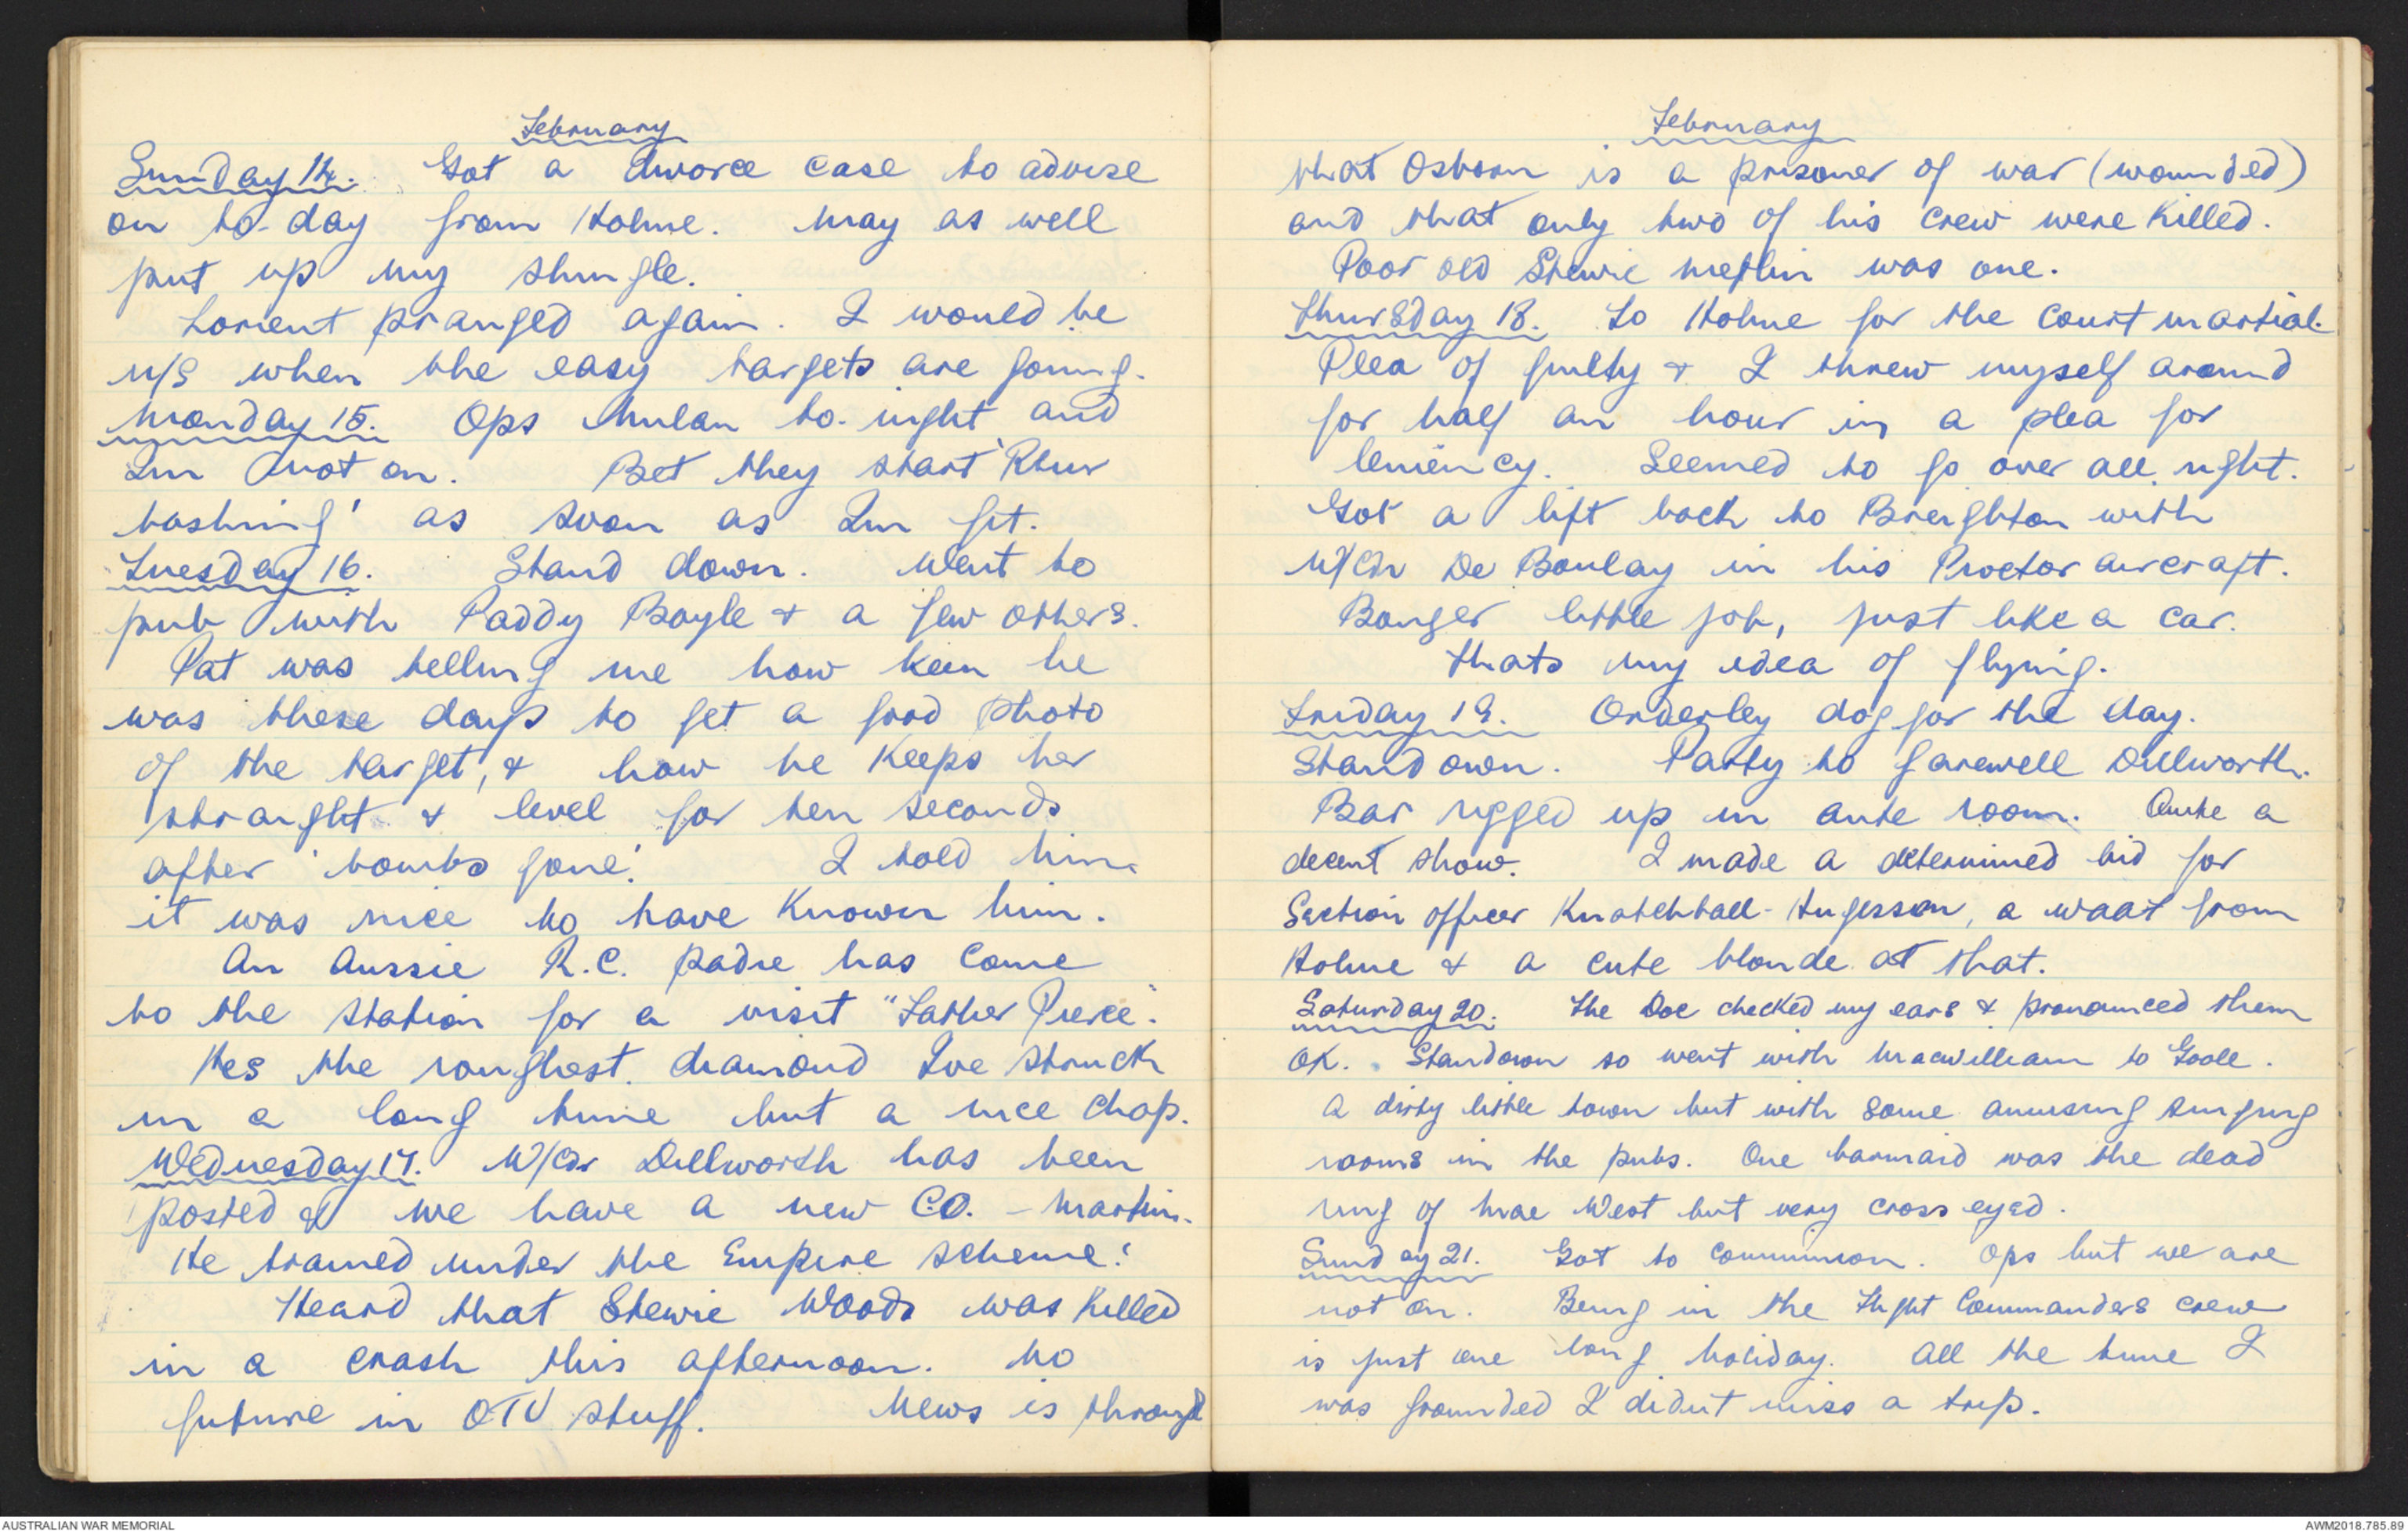 February
Sunday 14. Got a divorce case to advise
on to-day from Holme. May as well
put up my shingle.
Lorient pranged again. I would be
u/s when the easy targets are going.
Monday 15. Ops Milan to-night and
Im not on. Bet they start 'Rhur
bashing' as soon as Im fit.
Tuesday 16. Stand down. Went to
pub with Paddy Boyle & a few others.
Pat was telling me how keen he
was these days to get a good photo
of the target, & how he keeps her
straight & level for ten seconds
after 'bombs gone'. I told him
it was nice to have known him.
An Aussie R.C. padre has come
to the station for a visit "Father Pierce".
Hes the roughest diamond Ive struck
in a long time but a nice chap.
Wednesday 17. W/Cdr Dillworth has been
posted & we have a new C.O. - Martin.
He trained under the Empire scheme!
Heard that Stewie Woods was killed
in a crash this afternoon. No
future in OTU stuff. News is through
February
that Osborn is a prisoner of war (wounded)
and that only two of his crew were killed.
Poor old Stewie was one.
Thursday 18. To Holme for the court martial.
Plea of guilty & I threw myself around
for half an hour in a plea for
leniency. Seemed to go over all right.
Got a lift back to Breighton with
W/Cdr De Boulay in his Proctor aircraft.
Bonzer little job, just like a car.
Thats my idea of flying.
Friday 19. Orderley dog for the day.
Standown. Party to farewell Dillworth.
Bar rigged up in ante room. Quite a
decent show. I made a determined bid for
Section Officer Knatchball-Hugersson, a waaf from
Holme & a cute blonde at that.
Saturday 20. The Doc checked my ears & pronounced them
OK. Standown so went with Macwilliam to Goole.
A dirty little town but with some amusing singing
rooms in the pubs. One barmaid was the dead
ring of Mae West but very cross eyed.
Sunday 21. Got to communion. Ops but we are
not on. Being in the Flight Commanders crew
is just one long holiday. All the time I
was grounded I didn't miss a trip.
AUSTRALIAN WAR MEMORIAL
AWM2018.785.89